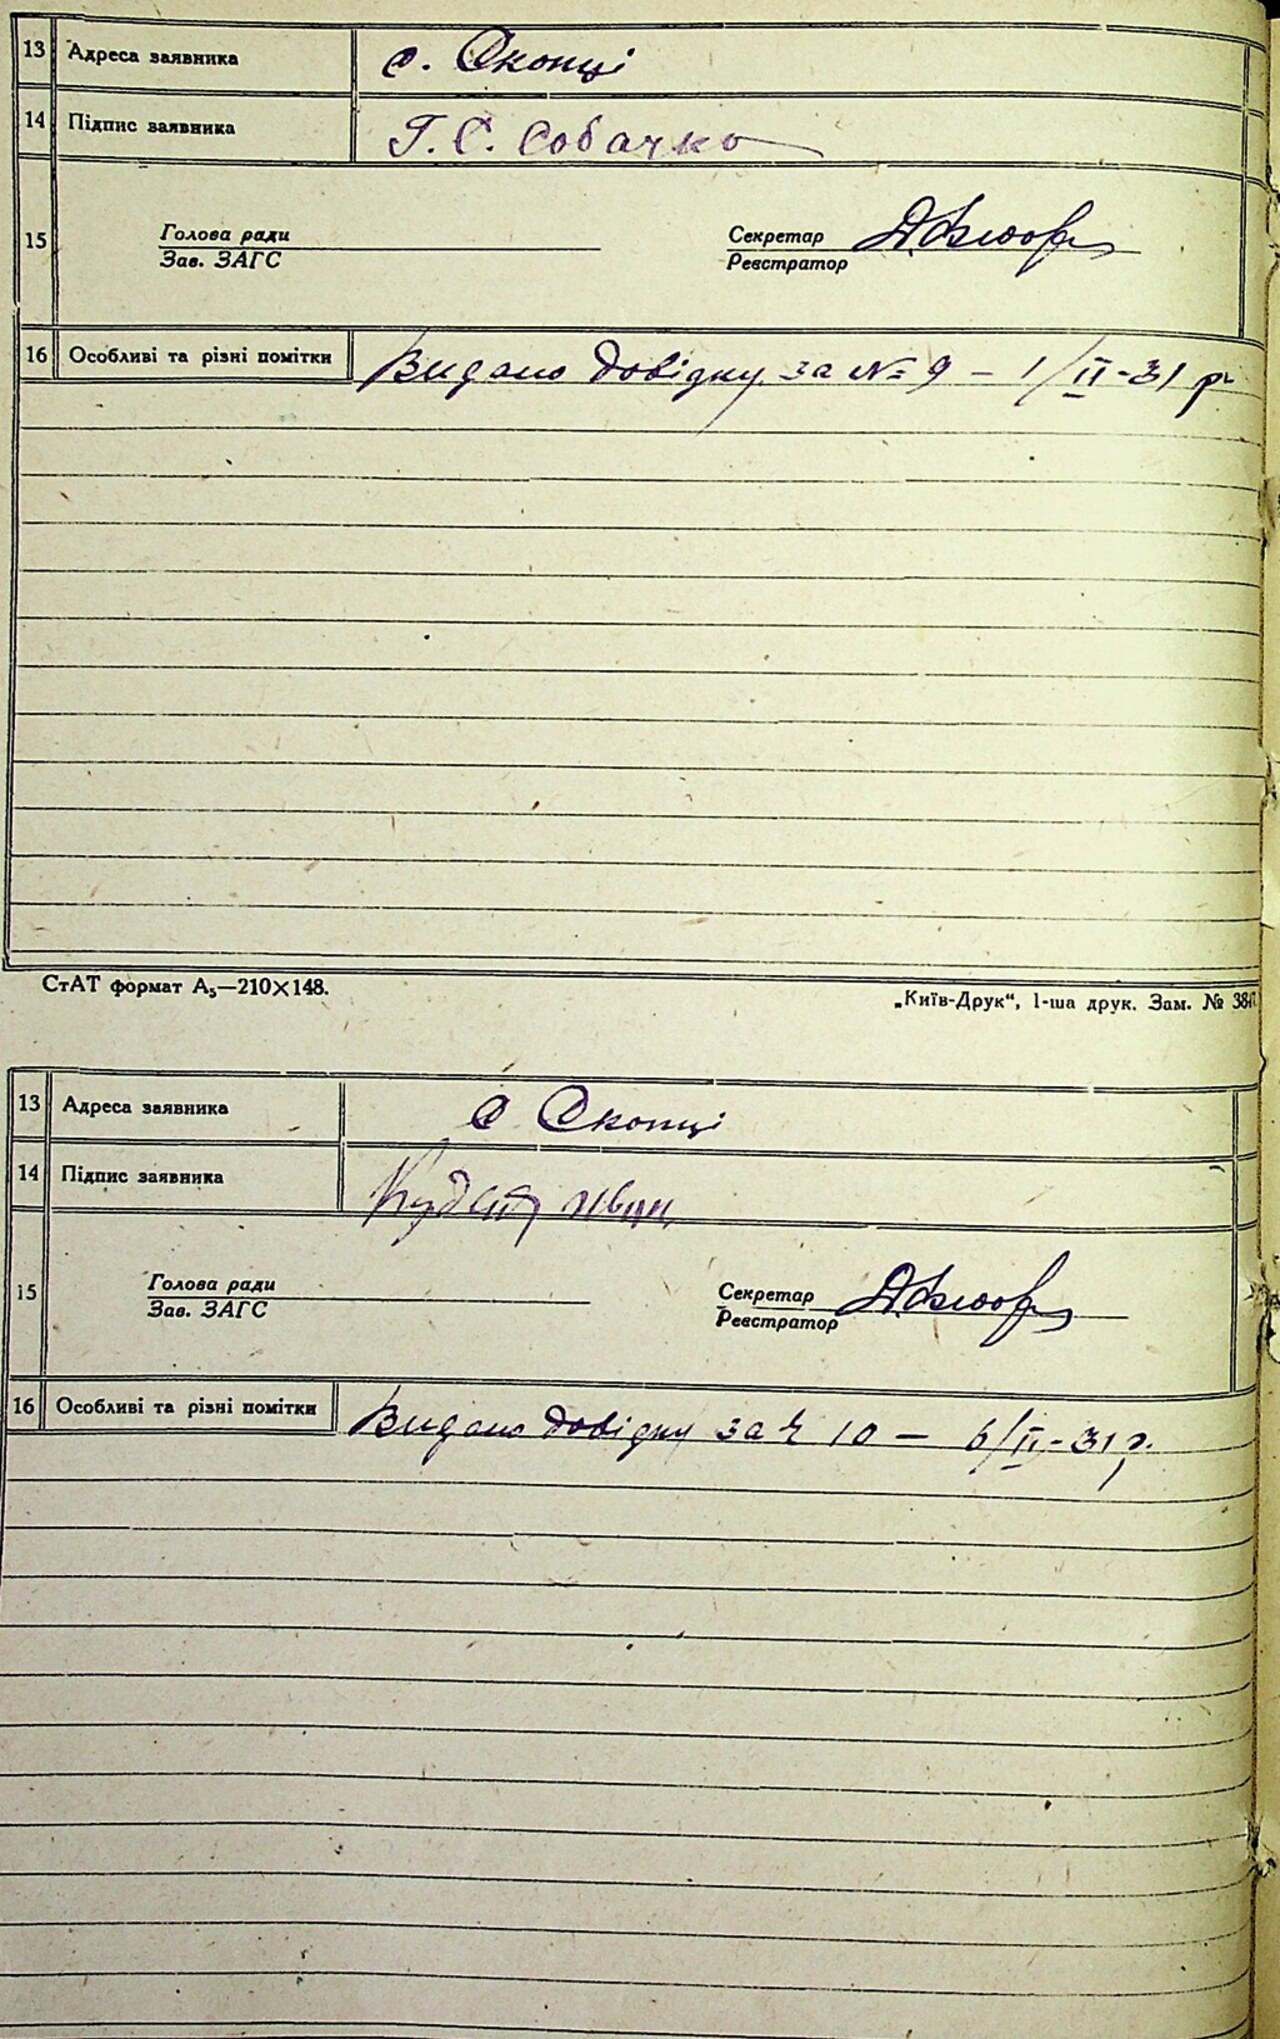 13 Адреса заявника с. Скопці
14 Підпис заявника Г. С. Собачко
15 Голова ради Секретар
Зав. ЗАГС Реєстратор
16 Особливі та різні помітки Видано довідку за № 9 – 1/II-31 р.
СтАТ формат А5—210×148. „Київ-Друк“, 1-ша друк. Зам. № 384
13 Адреса заявника с Скопці
14 Підпис заявника
15 Голова ради Секретар
Зав. ЗАГС Реєстратор
16 Особливі та різні помітки Видано довідку за Ч 10 – 6/II-31 р.